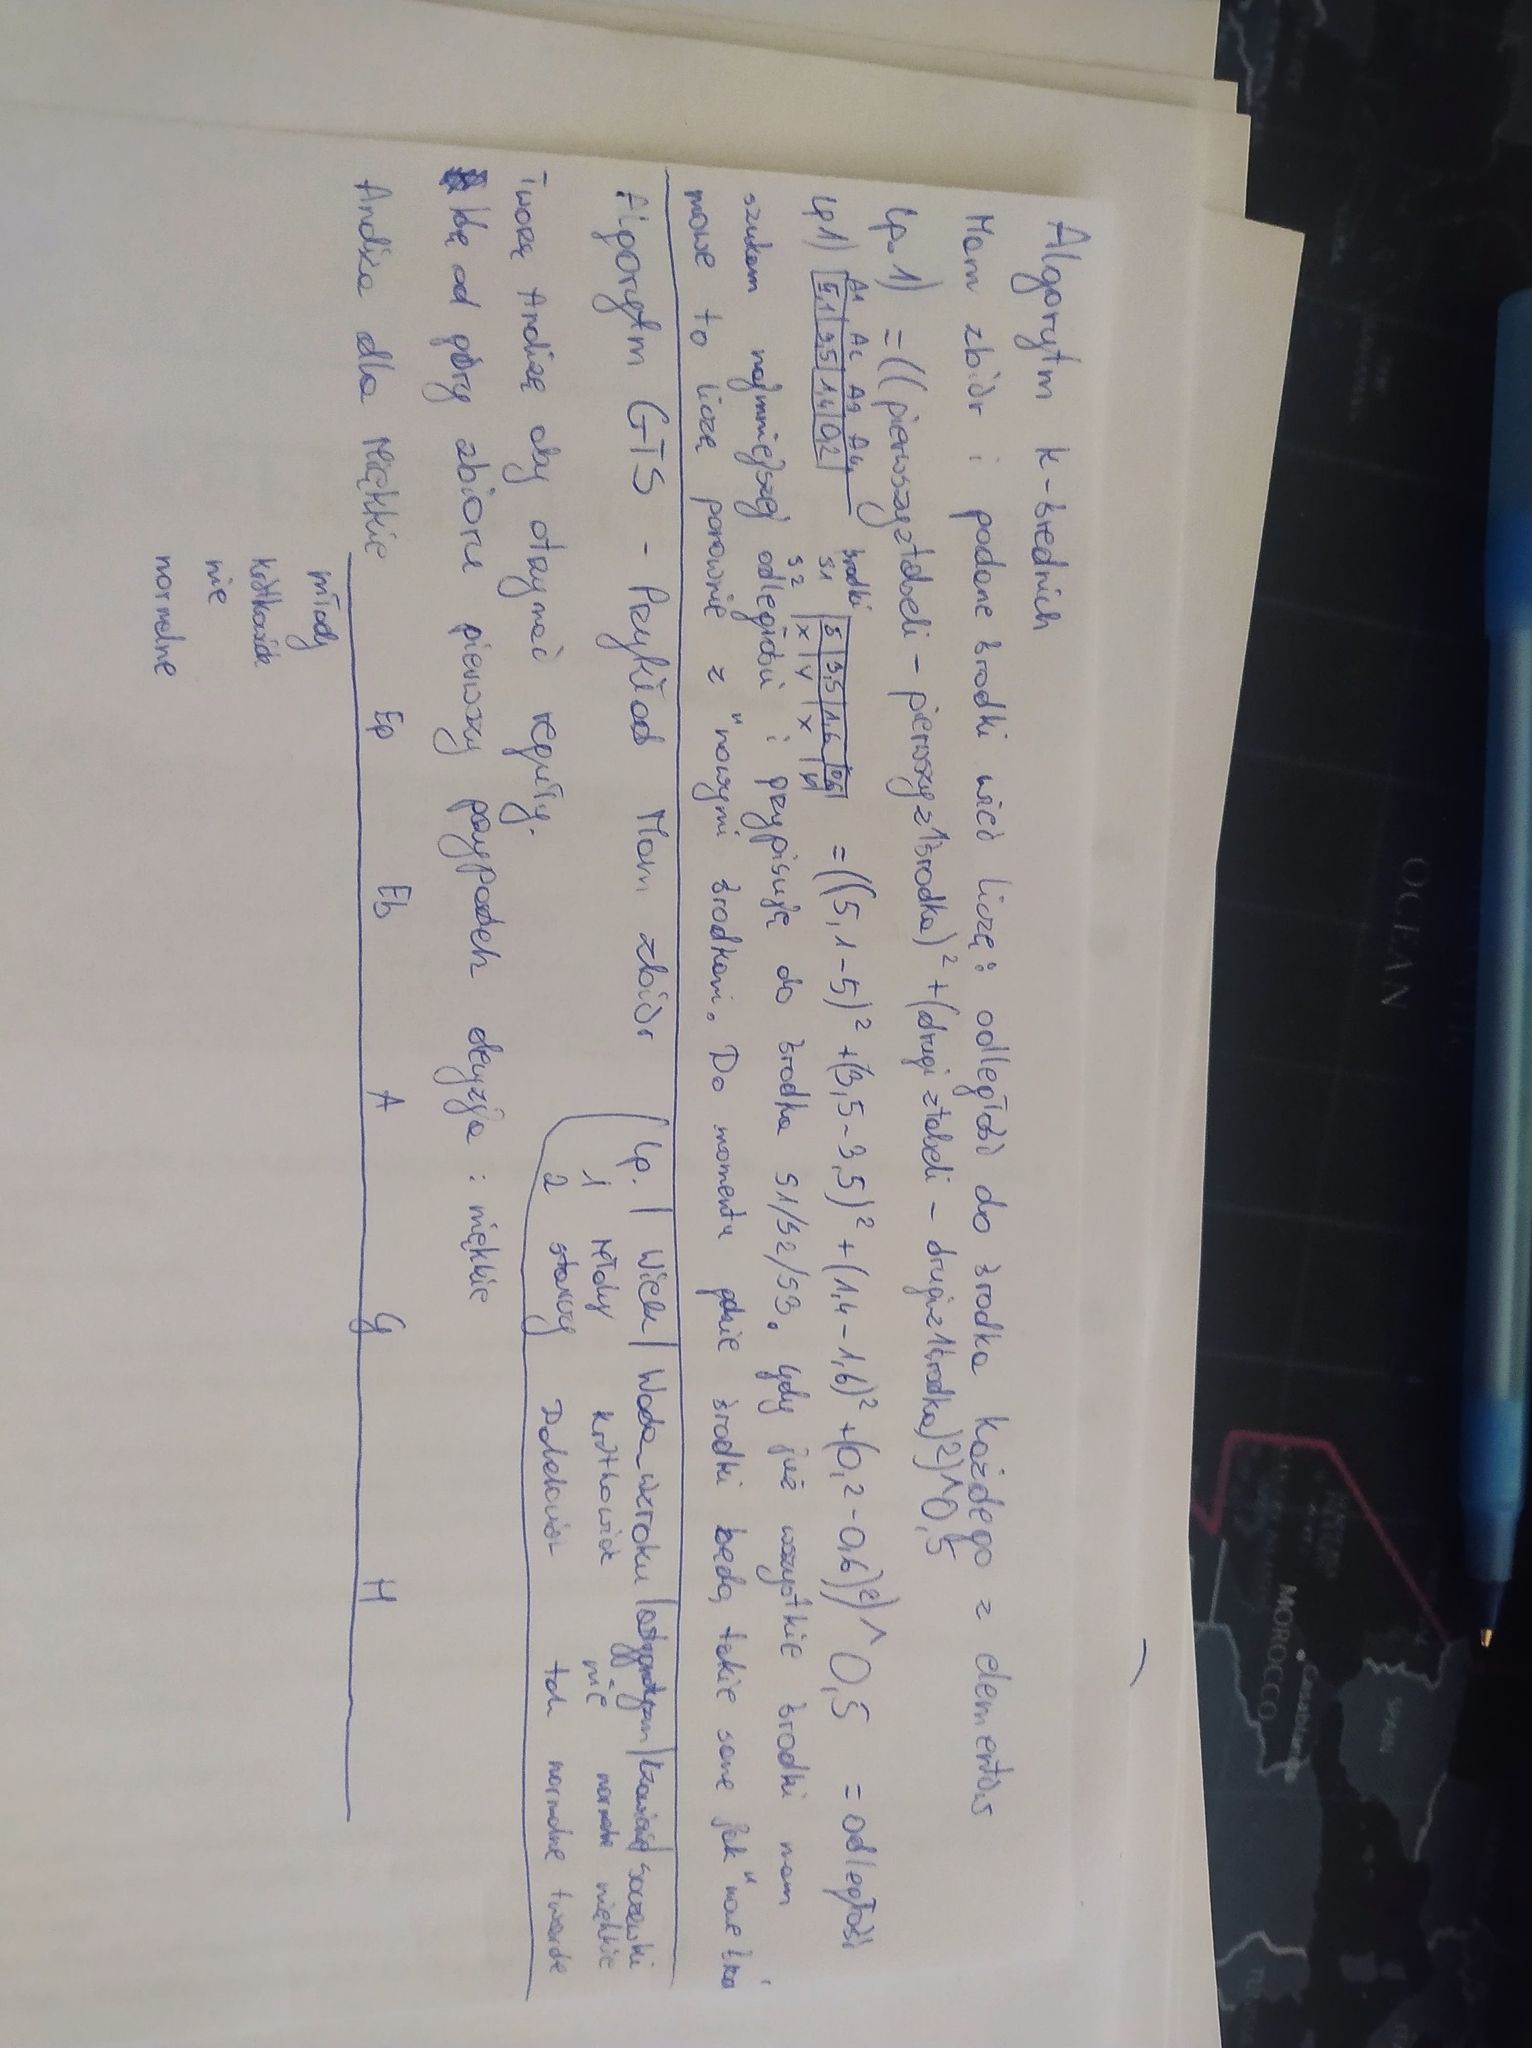 OCEAN
SPAIN
Casablanca
MOROCCO
Algorytm k-średnich
Mam zbiór i podane środki więc liczę: odległość do środka każdego z elementów
Lp. 1) = ((pierwszy z tabeli - pierwszy z 1 środka)² + (drugi z tabeli - drugi z 1 środka)²)^0,5
A1 A2 A3 A4
Lp 1) 5,1 3,5 1,4 0,2 środki S1 5 3,5 1,6 0,6 = ((5,1-5)² + (3,5-3,5)² + (1,4-1,6)² + (0,2-0,6)²)^0,5 = odległość
S2 X Y X Y
szukam najmniejszej odległości i przypisuję do środka S1/S2/S3. Gdy już wszystkie środki mam
nowe to liczę ponownie z "nowymi środkami. Do momentu gdzie środki będą takie same jak "nowe
Algorytm GTS - Przykład Mam zbiór
Lp. | Wiek | Wada wzroku | astygmatyzm | Łzawienie | soczewki
1 Młody krótkowidz nie normalne miękkie
2 starczy Dalekowidz tak normalne twarde
Tworzę Analizę aby otrzymać reguły.
Idę od góry zbioru pierwszy przypadek decyzja: miękkie
Analiza dla Miękkie Ep Eb A G H
młody
krótkowidz
nie
normalne